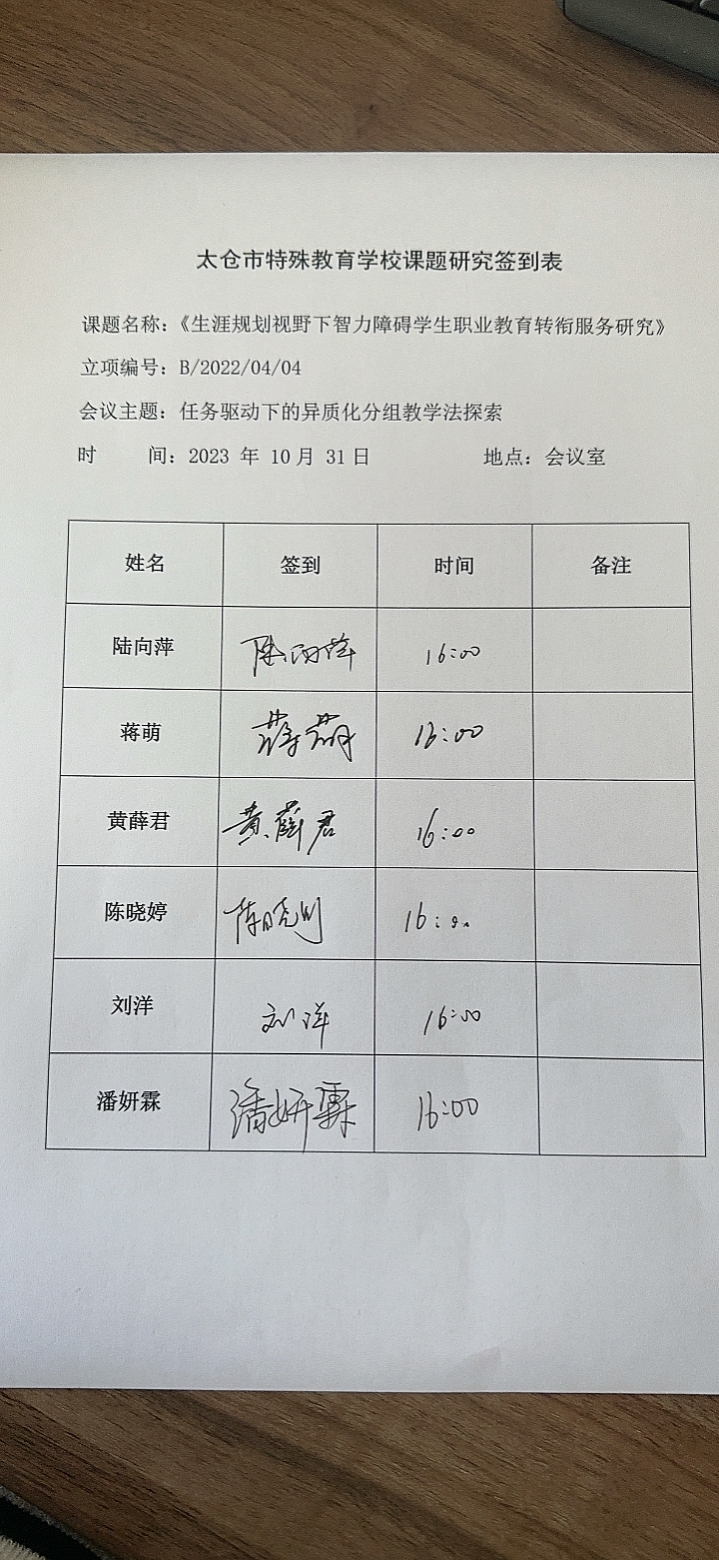 太仓市特殊教育学校课题研究签到表
课题名称：《生涯规划视野下智力障碍学生职业教育转衔服务研究》
立项编号：B/2022/04/04
会议主题：任务驱动下的异质化分组教学法探索
时　　间：2023 年 10 月 31 日　　　　地点：会议室
姓名 签到 时间 备注
陆向萍 陆向萍 16:00
蒋萌 蒋萌 16:00
黄薛君 黄薛君 16:00
陈晓婷 陈晓 16:00
刘洋 刘洋 16:00
潘妍霖 潘妍霖 16:00